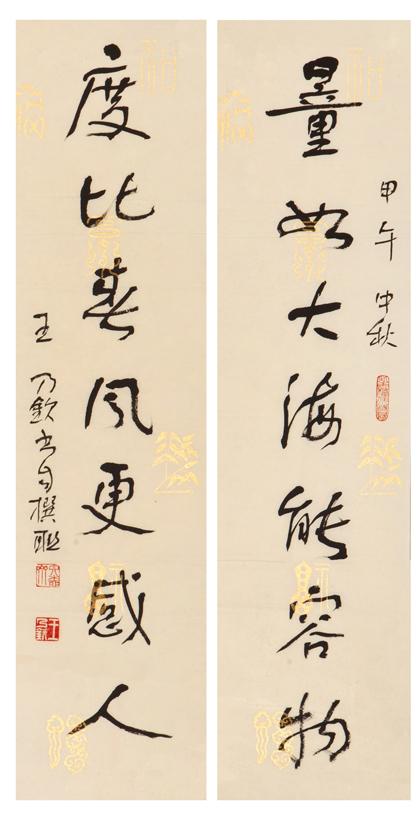 量如大海能容物
甲午中秋
度比春风更感人
王乃欽书自撰联